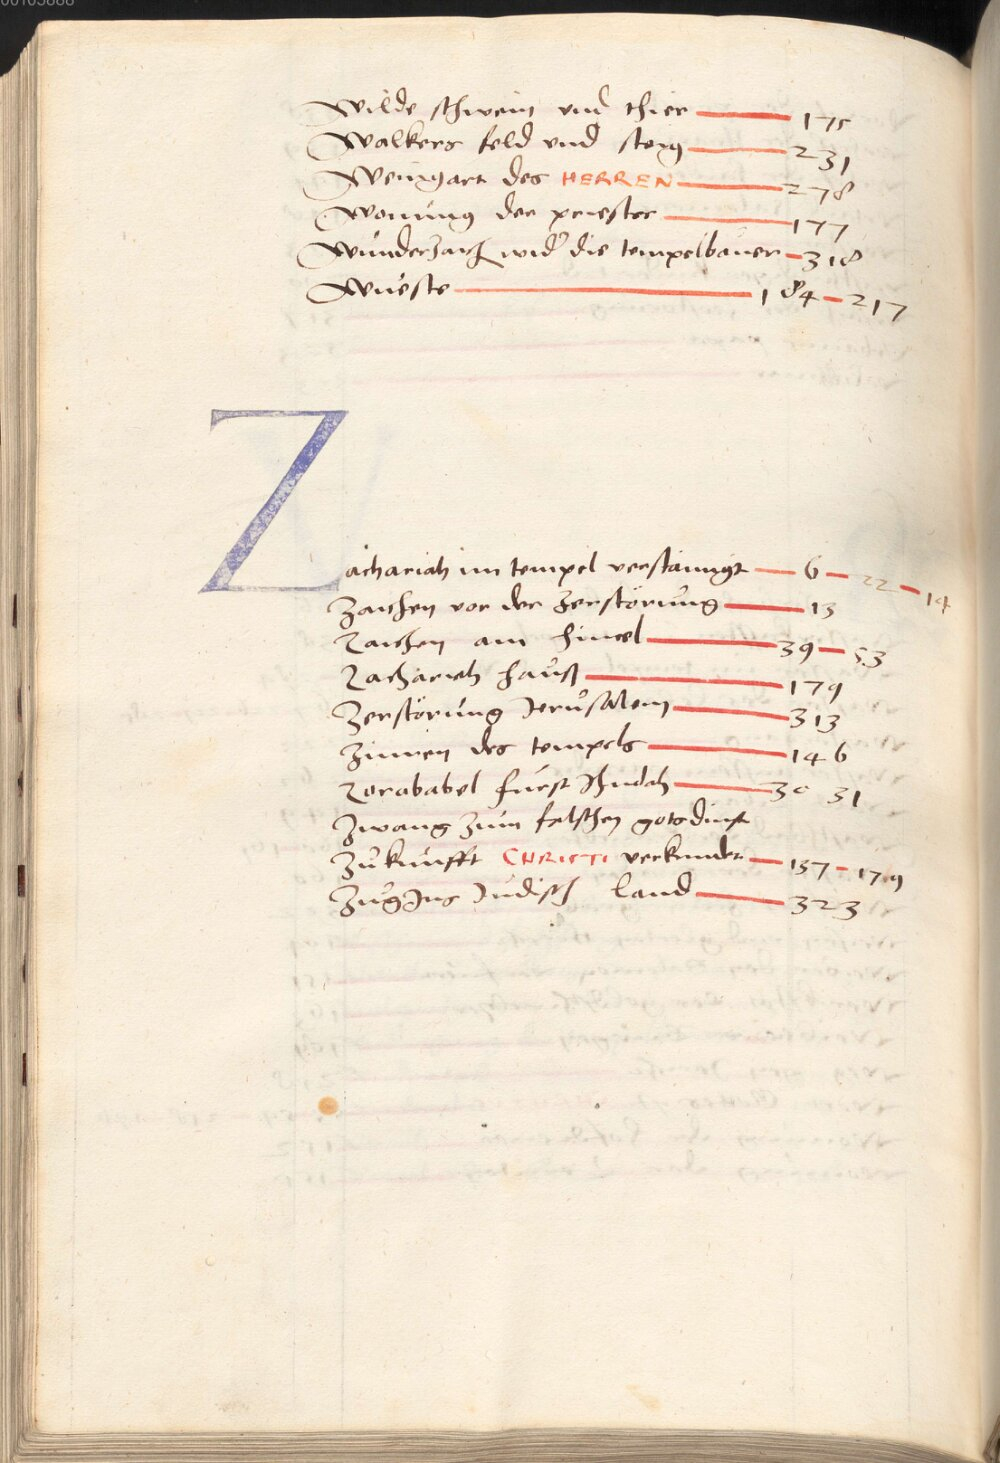 00105888
Wilde schwein und thier 175
Walkers feld und steig 231
Weingart des HERREN 278
Wonung der priester 177
Wunderzaich wid die tempelbauer 318
Wueste 184 217
Zachariah im tempel verstaimigt 6 22 14
Zaichen vor der Zerstörung 13
Zaichen am himel 39 53
Zachariah hauß 179
Zerstörung Jerusalem 313
Zinnen des tempels 146
Zorababel fürst Jhudah 30 31
Zwang zum falschen gotsdinst
Zukunfft CHRISTI verkundet 137 179
Zug Ins Judisch land 323